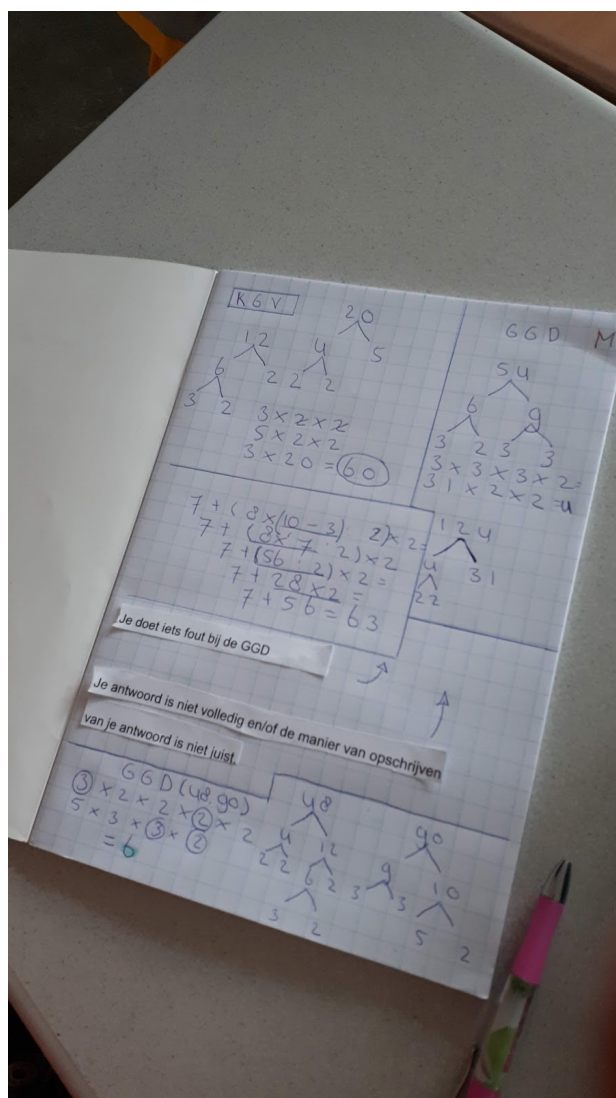 KGV
20
12 4 5
6 2 2 2
3 2
3 × 2 × 2
5 × 2 × 2
3 × 20 = 60
GGD M
54
6 9
3 2 3 3
3 × 3 × 3 × 2 =
31 × 2 × 2 = 4
124
4 31
22
7 + (8 × (10 - 3) : 2) × 2 =
7 + (8 × 7 : 2) × 2
7 + (56 : 2) × 2 =
7 + 28 × 2 =
7 + 56 = 63
Je doet iets fout bij de GGD
Je antwoord is niet volledig en/of de manier van opschrijven
van je antwoord is niet juist.
GGD (48,90)
3 × 2 × 2 × 2 × 2
5 × 3 × 3 × 2
= 6
48
4 12
2 2 6 2
3 2
90
9 10
3 3 5 2